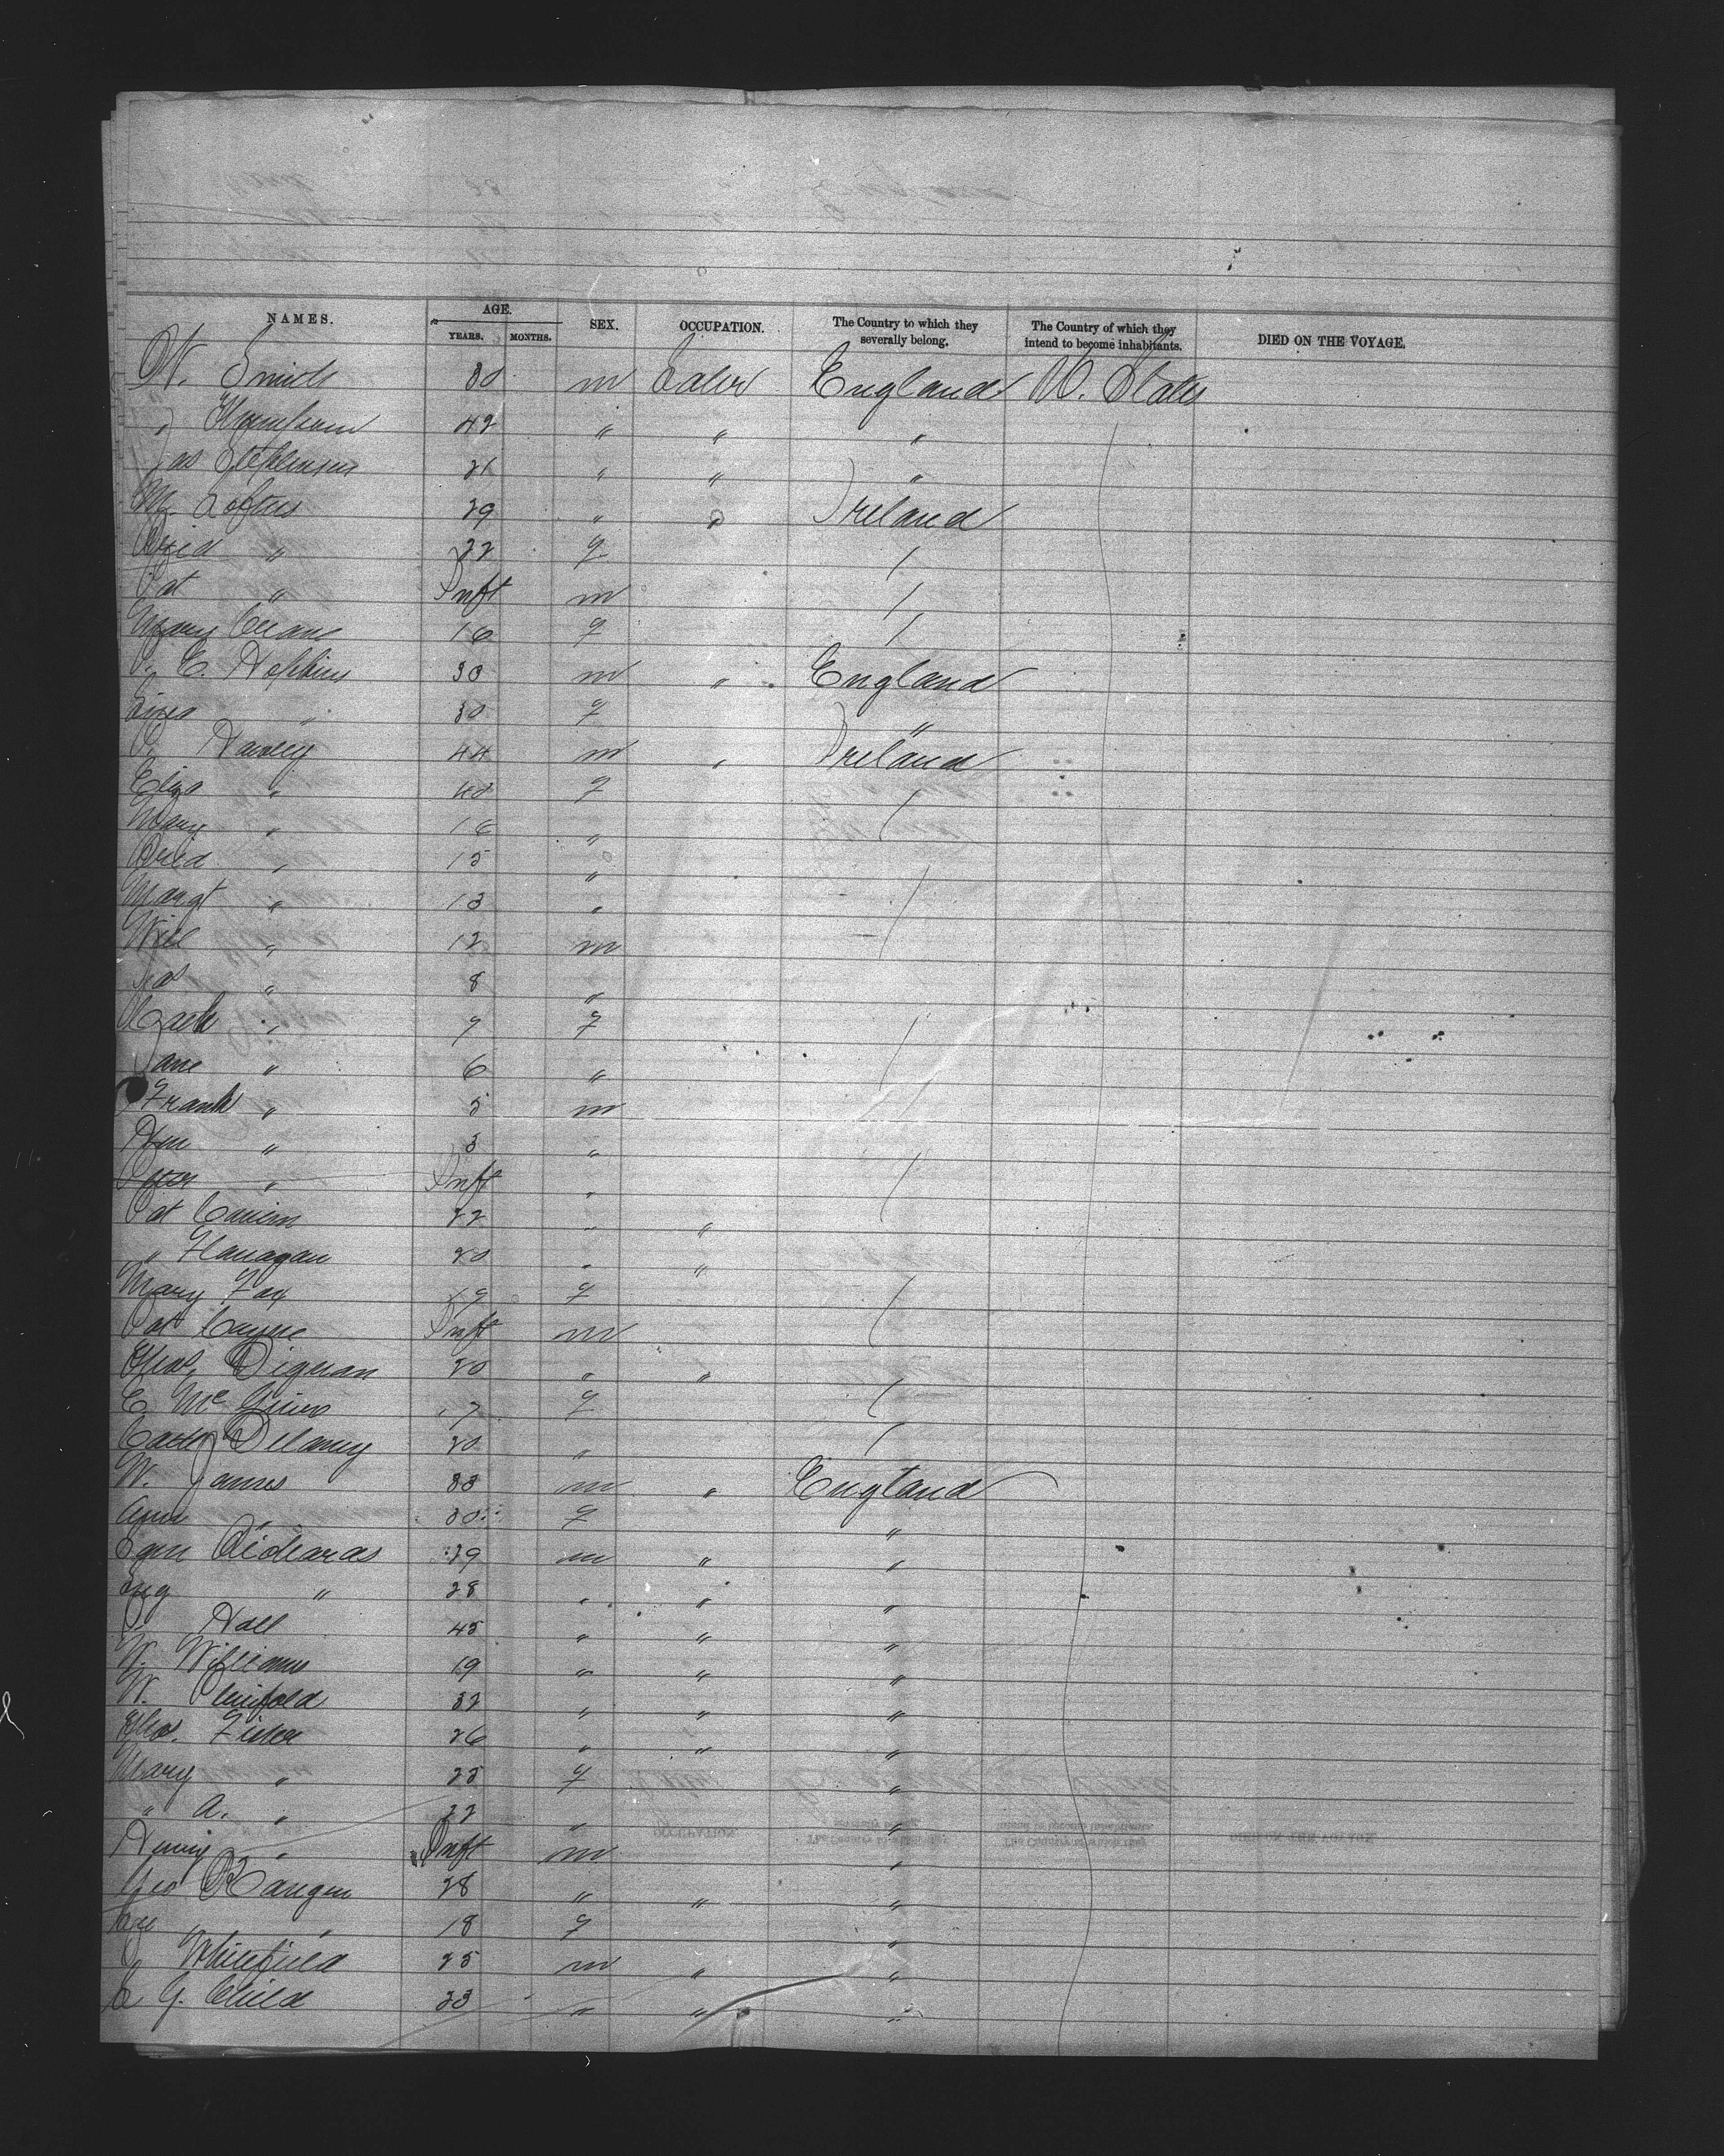 NAMES. AGE. YEARS. MONTHS. SEX. OCCUPATION. The Country to which they severally belong. The Country of which they intend to become inhabitants. DIED ON THE VOYAGE.
W. Smith 30 m Labr England U. States
" 42 " " "
Jas Stephenson 21 " " "
M. Loftus 29 " " Ireland
Brid " 22 f
Pat " Inft m
Mary 16 f
" C. Hopkins 30 m " England
Liza " 30 f "
P. Hawley 44 m " Ireland
Eliza " 40 f
Mary " 16 "
Brid " 15 "
Margt " 13 "
Will " 12 m
Jas " 8 "
Cath " 7 f
Jane " 6 "
Frank " 5 m
Hen " 3 "
Peter " Inft "
Pat 22 " "
" Flanagan 20 " "
Mary Fox 19 f
Pat Coyne Inft m
Thos Dignan 20 " "
C. Mc 17 f
Cath Delaney 20 "
W. James 33 m " England
Ann " 30 f "
Sam 29 m " "
" 28 " " "
Hall 45 " " "
W. Williams 19 " " "
W. 32 " " "
Thos. Fisher 26 " " "
Mary " 25 f "
" A. " 22 " "
Henry " Inft m "
Geo 28 " " "
" 18 f "
Whitefield 25 m " "
G. Child 23 " " "